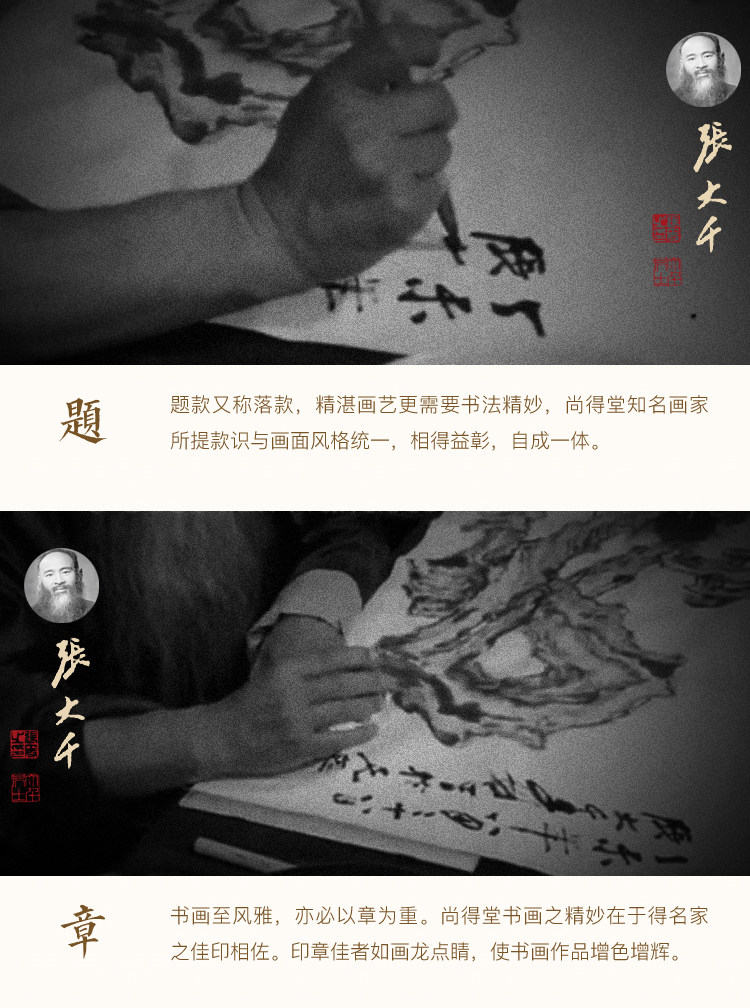 張大千
題
题款又称落款，精湛画艺更需要书法精妙，尚得堂知名画家
所提款识与画面风格统一，相得益彰，自成一体。
張大千
章
书画至风雅，亦必以章为重。尚得堂书画之精妙在于得名家
之佳印相佐。印章佳者如画龙点睛，使书画作品增色增辉。